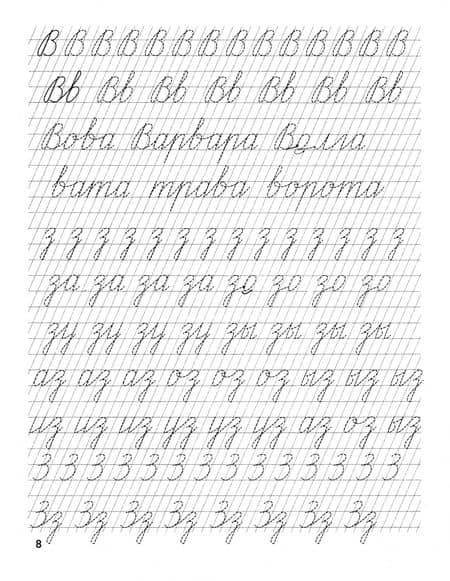 В В В В В В В В В В В В В В
Вв Вв Вв Вв Вв Вв Вв
Вова Варвара Волга
вата трава ворота
з з з з з з з з з з з з з з
за за за за зо зо зо зо
зу зу зу зу зы зы зы зы
аз аз аз оз оз оз ыз ыз ыз
из из из уз уз уз аз оз ыз
З З З З З З З З З З З З З З
Зз Зз Зз Зз Зз Зз Зз Зз
8